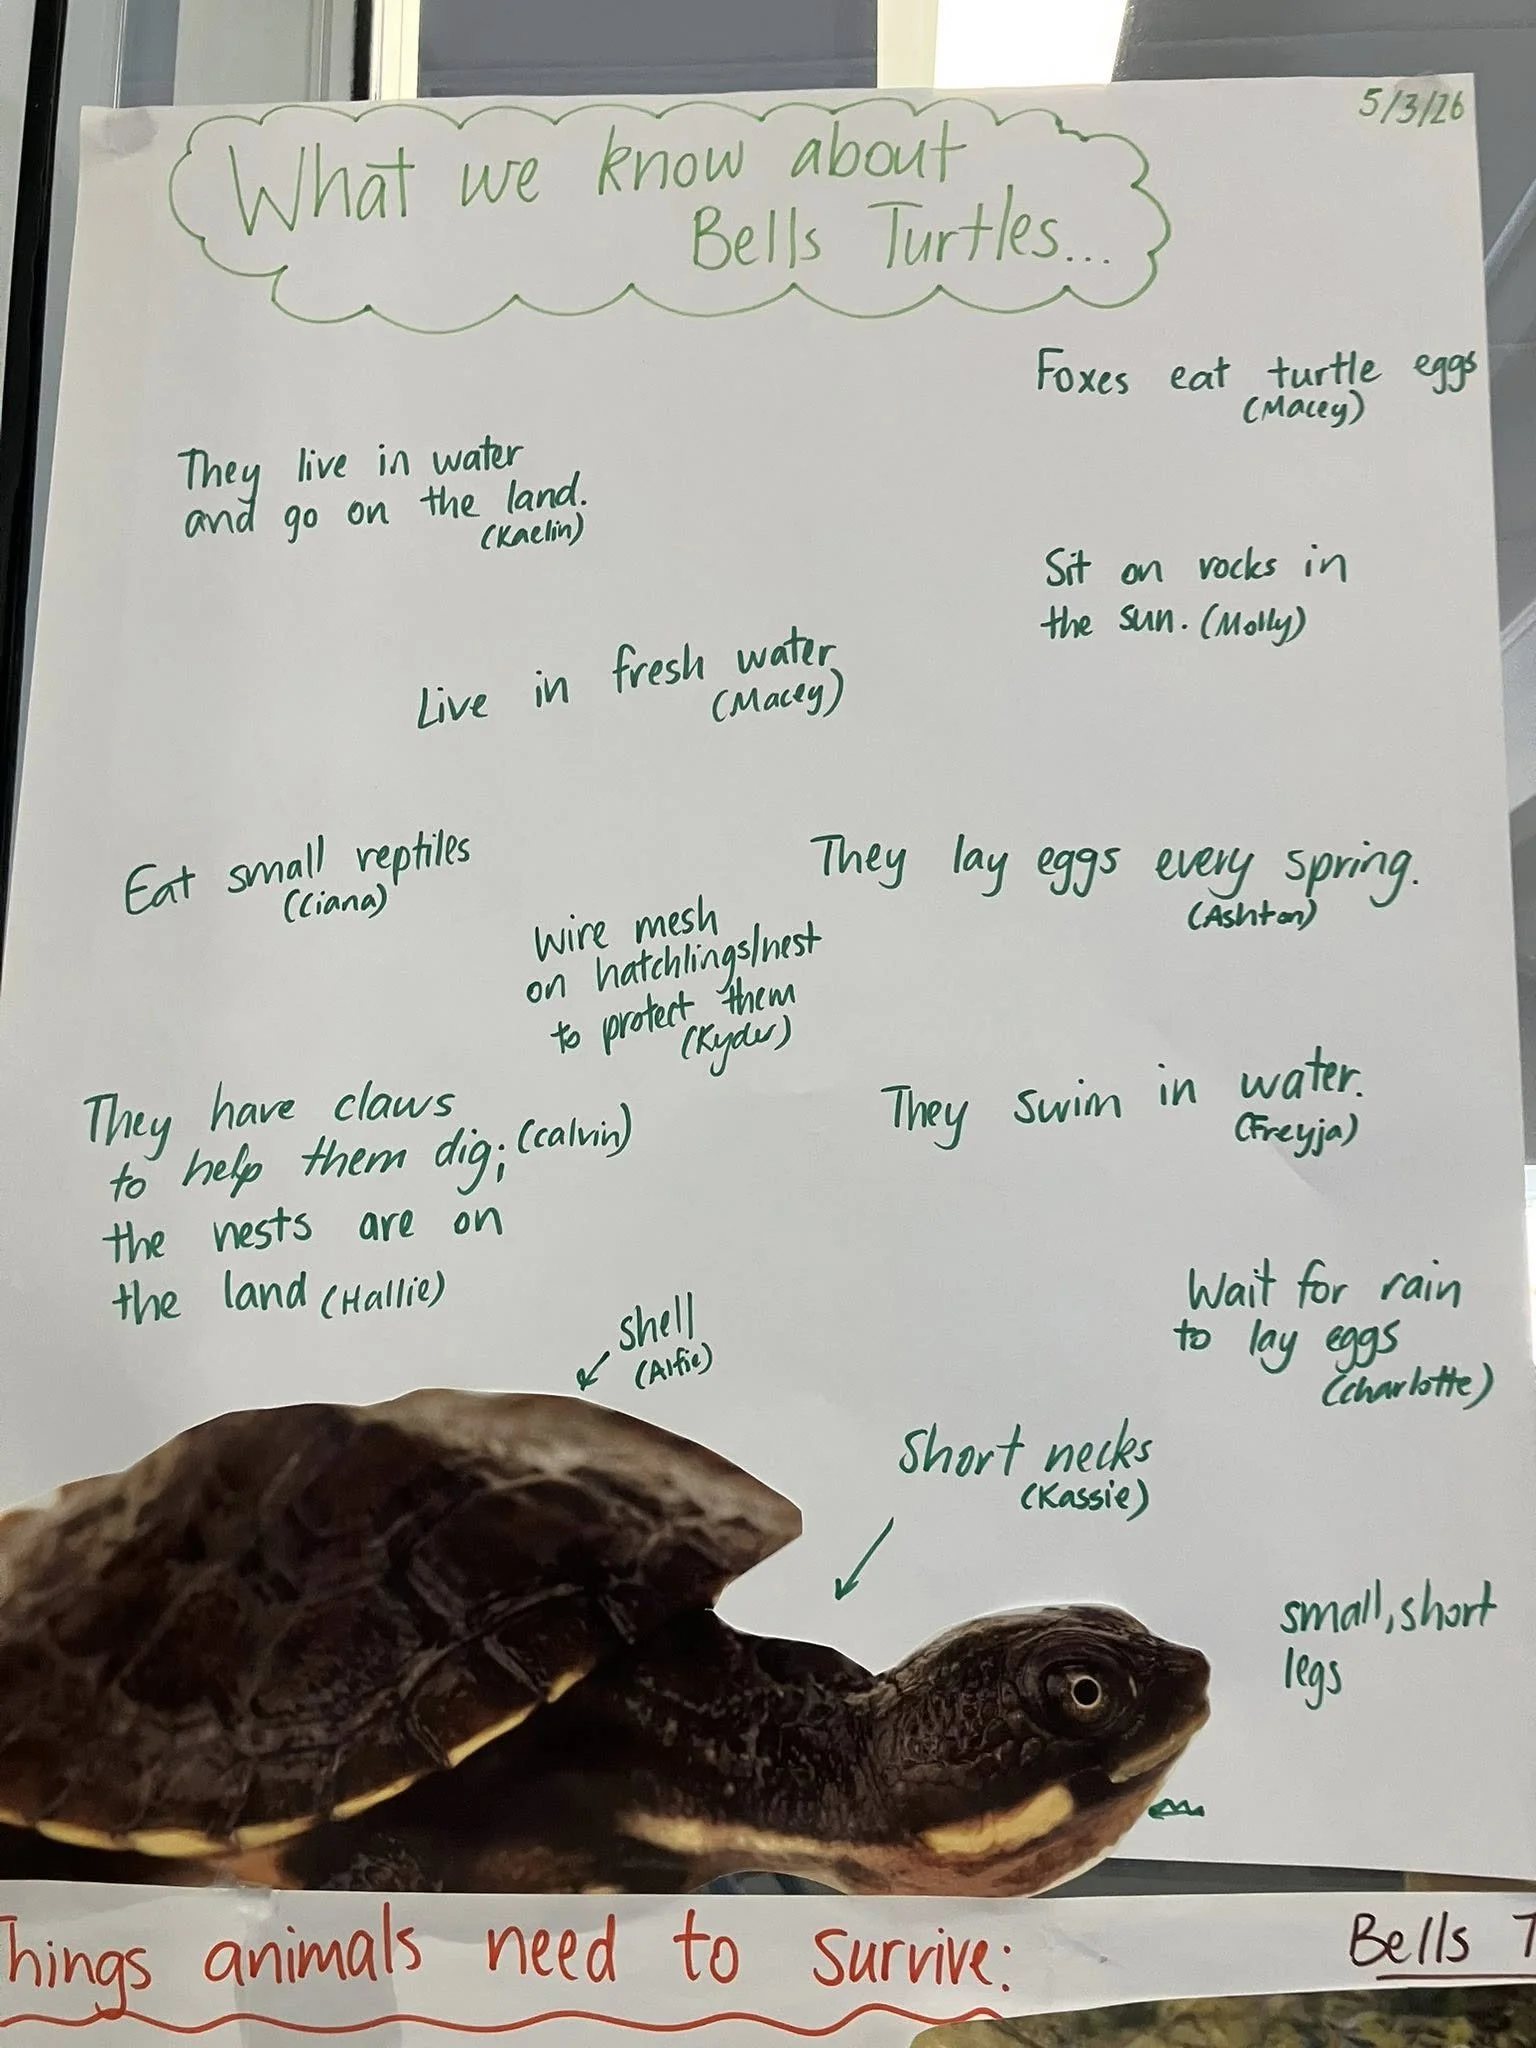 5/3/26
What we know about
Bells Turtles...
Foxes eat turtle eggs
(Macey)
They live in water
and go on the land.
(Kaelin)
Sit on rocks in
the sun. (Molly)
Live in fresh water
(Macey)
Eat small reptiles
(Ciana)
They lay eggs every spring.
(Ashton)
Wire mesh
on hatchlings/nest
to protect them
(Kyder)
They have claws
to help them dig; (Calvin)
the nests are on
the land (Hallie)
They swim in water.
(Freyja)
Wait for rain
to lay eggs
(Charlotte)
shell
(Alfie)
Short necks
(Kassie)
small, short
legs
Things animals need to survive:
Bells T